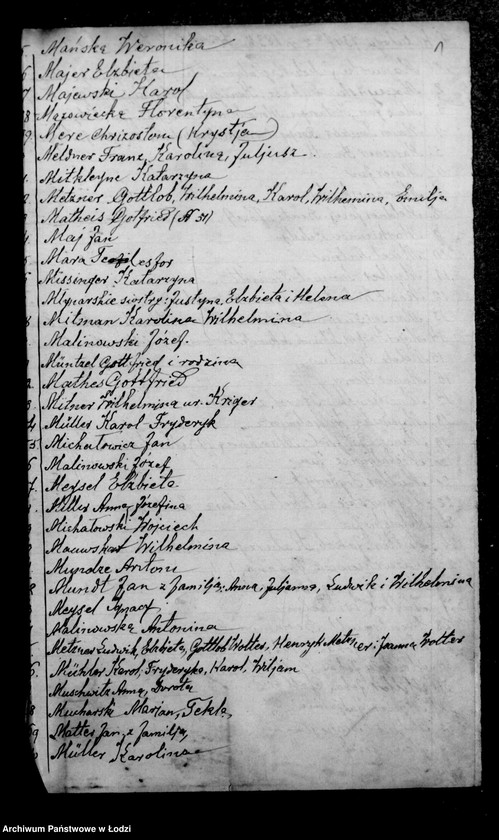 5 Mańska Weronika
6 Majer Elżbieta
7 Majewski Karol
8 Mazowiecka Florentyna
9 Mere Chrizostom (Krystja)
Meldner Franc, Karolina, Juljusz.
Mitkleyne Katarzyna
2. Metzner Gottlob, Wilhelmina, Karol, Wilhelmina, Emilja
Matheis Gotfried (N 31)
4. Maj Jan
Mara
Missinger Katarzyna
Młynarskie siostry: Justyna, Elżbieta i Helena
8 Mitman Karolina Wilhelmina
Malinowski Józef.
Müntzel Gottfried i rodzina
2 Mathes Gottfried
3 Mitner Wilhelmina ur. Kriger
4 Müller Karol Fryderyk
5 Michałowicz Jan
6 Malinowski Józef
7. Meysel Elżbieta
Miller Anna Józefina
Michałowski Wojciech
Wilhelmina
Antoni
Mundt Jan z familją: Anna, Juljanna, Ludwik i Wilhelmina
Meysel Ignacy
Malinowska Antonina
Metzner Ludwik, Elżbieta, Gottlob Wolter, Henryk Metzner i Joanna Wolter
6. Mühler Karol, Fryderyka, Karol, Wiljam
Muschwitz Anna, Dorota
8 Mucharski Marjan, Tekla,
9 Mattes Jan z familją,
Müller Karolina
Archiwum Państwowe w Łodzi